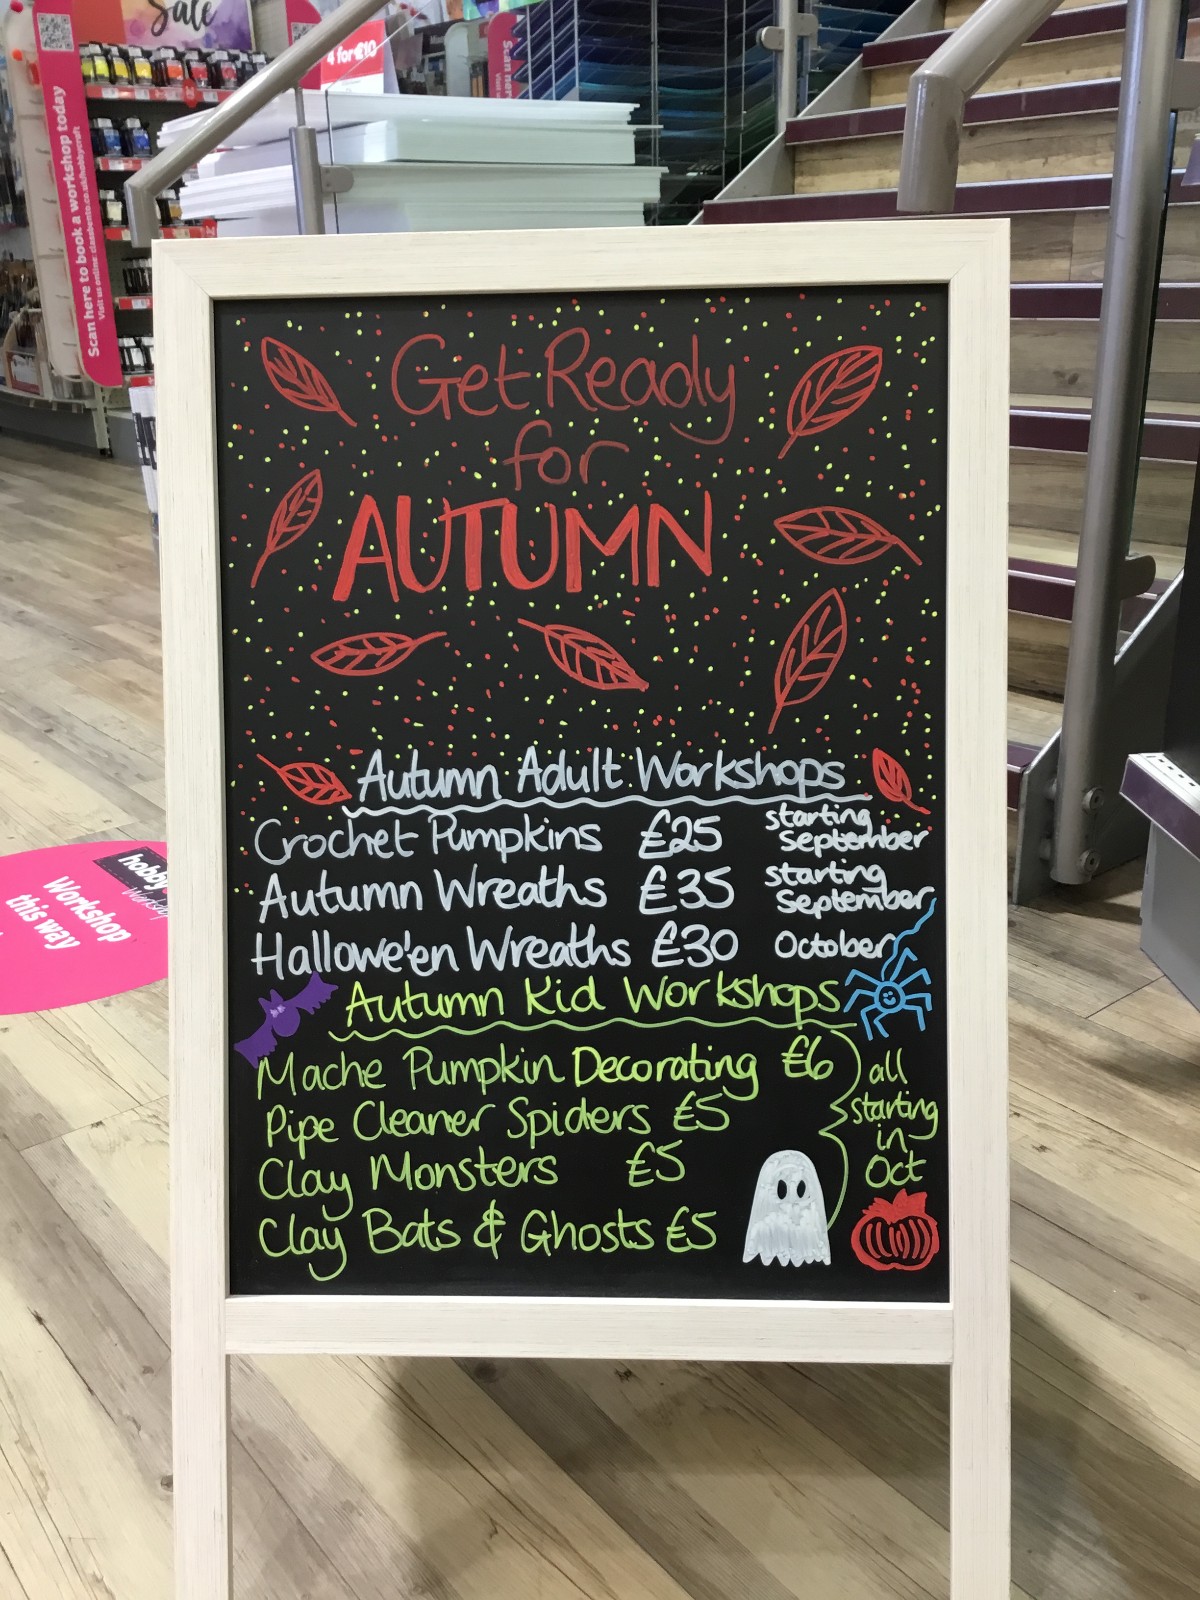 Sale
4 for £10
Scan here to book a workshop today
Visit us online: classbento.co.uk/hobbycraft
Get Ready
for
AUTUMN
Autumn Adult Workshops
Crochet Pumpkins £25 starting September
Autumn Wreaths £35 starting September
Hallowe'en Wreaths £30 October
Autumn Kid Workshops
Mache Pumpkin Decorating £6
Pipe Cleaner Spiders £5
Clay Monsters £5
Clay Bats & Ghosts £5
all
starting
in
Oct
hobby
Workshop
this way